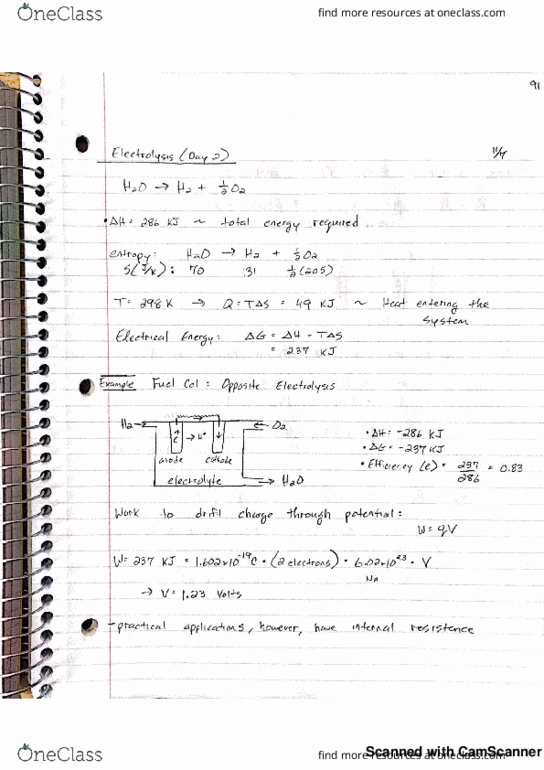 OneClass find more resources at oneclass.com
91
Electrolysis (Day 2) 11/7
H₂O → H₂ + ½O₂
• ΔH = 286 KJ ~ total energy required
entropy: H₂O → H₂ + ½O₂
S(J/K): 70 131 ½(205)
T = 298K → Q = TΔS = 49 KJ ~ Heat entering the
system
Electrical Energy: ΔG = ΔH - TΔS
= 237 KJ
Example Fuel Cel: Opposite Electrolysis
H₂ O₂
e⁻ → H⁺
anode cathode
electrolyte → H₂O
• ΔH = -286 KJ
• ΔG = -237 KJ
• Efficiency (e) = 237/286 = 0.83
Work to drift charge through potential:
W = qV
W = 237 KJ = 1.602x10⁻¹⁹C • (2 electrons) • 6.02x10²³ • V
NA
→ V = 1.23 Volts
- practical applications, however, have internal resistence
Scanned with CamScanner
OneClass find more resources at oneclass.com